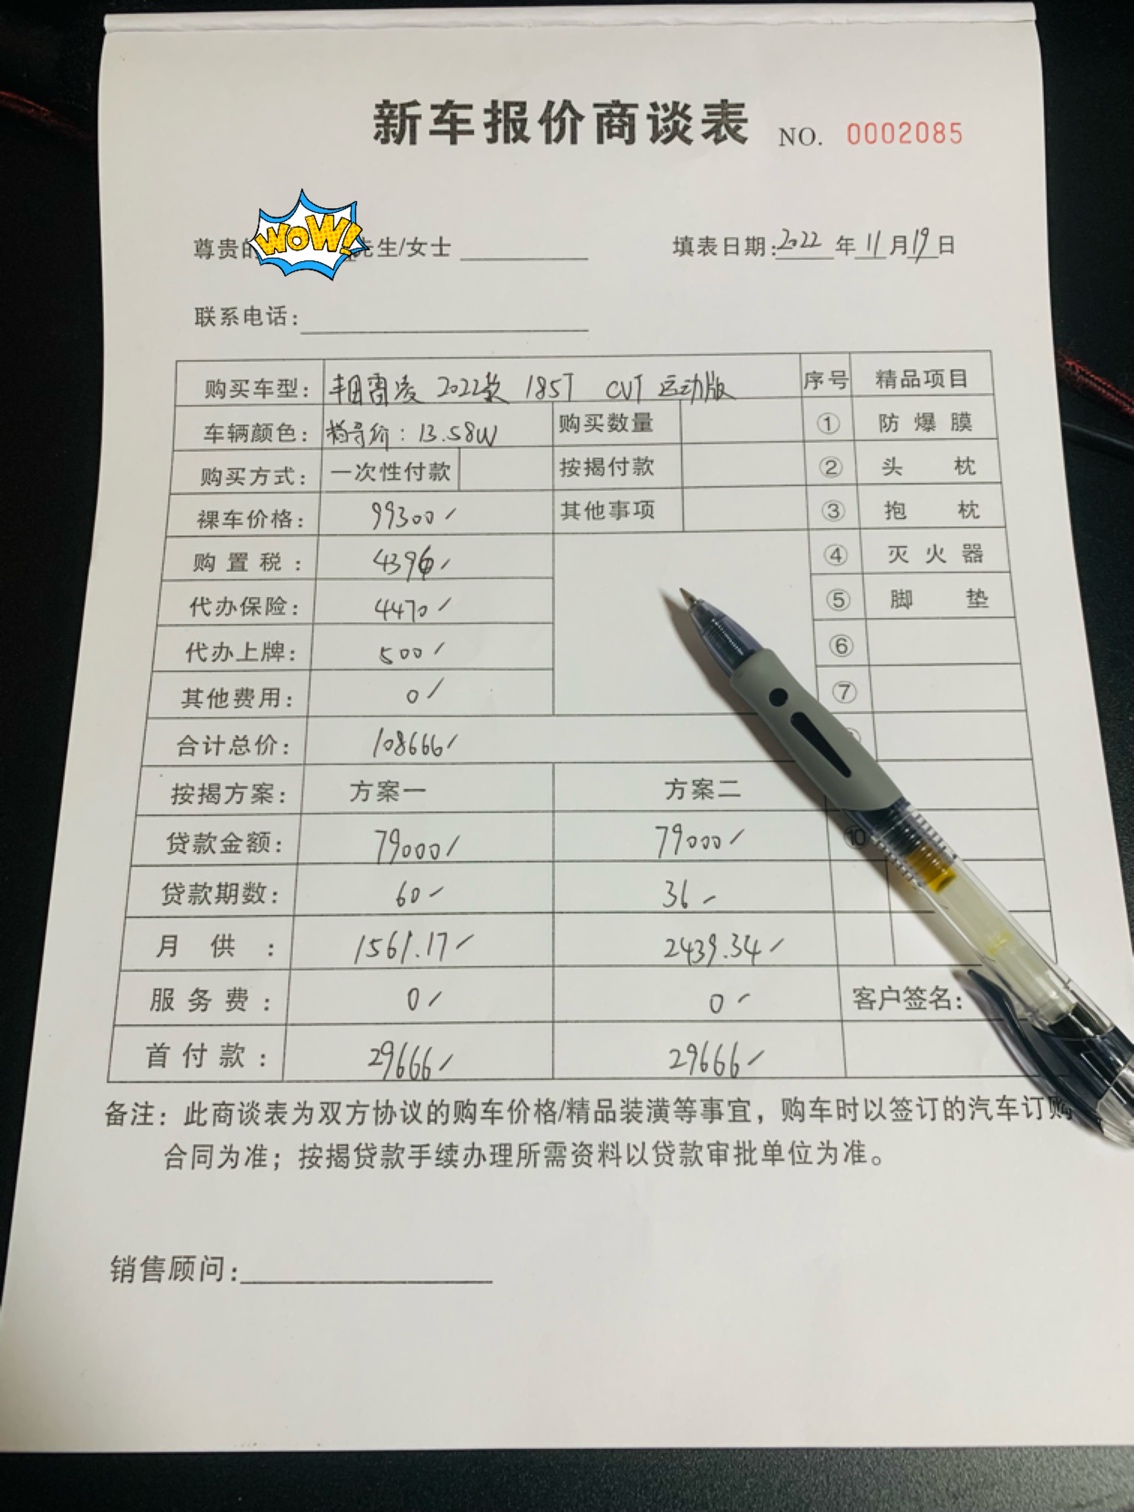 新车报价商谈表 NO. 0002085
WOW!
尊贵的 先生/女士 填表日期:2022年11月19日
联系电话:
购买车型: 丰田雷凌 2022款 185T CVT 运动版 序号 精品项目
车辆颜色: 指导价: 13.58W 购买数量 ① 防爆膜
购买方式: 一次性付款 按揭付款 ② 头枕
裸车价格: 99300 其他事项 ③ 抱枕
购置税: 4396 ④ 灭火器
代办保险: 4470 ⑤ 脚垫
代办上牌: 500 ⑥
其他费用: 0 ⑦
合计总价: 108666
按揭方案: 方案一 方案二
贷款金额: 79000 79000 ⑩
贷款期数: 60 36
月供: 1561.17 2439.34
服务费: 0 0 客户签名:
首付款: 29666 29666
备注: 此商谈表为双方协议的购车价格/精品装潢等事宜，购车时以签订的汽车订购
合同为准；按揭贷款手续办理所需资料以贷款审批单位为准。
销售顾问: